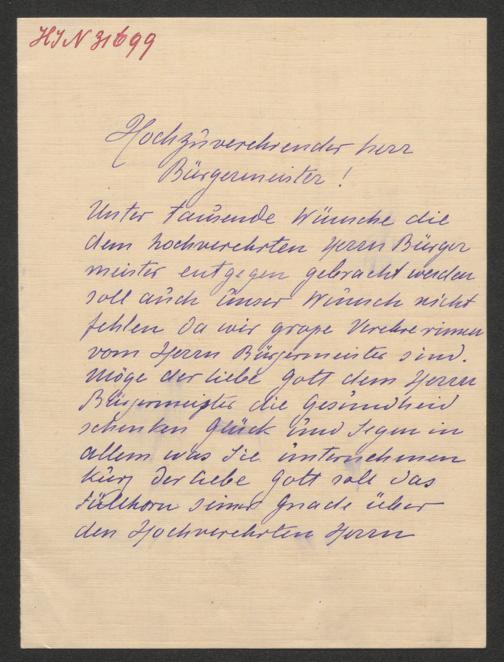 HIN 31699
Hochzuverehrender Herr
Bürgermeister!
Unter tausende Wünsche die
dem hochverehrten Herrn Bürger
meister entgegen gebracht werden
soll auch unser Wunsch nicht
fehlen da wir große Verehrerinnen
vom Herrn Bürgermeister sind.
Möge der liebe Gott dem Herrn
Bürgermeister die Gesundheid
schenken Glück und Segen in
allem was Sie unternehmen
kurz der liebe Gott soll das
Füllhorn seiner Gnade über
den Hochverehrten Herrn